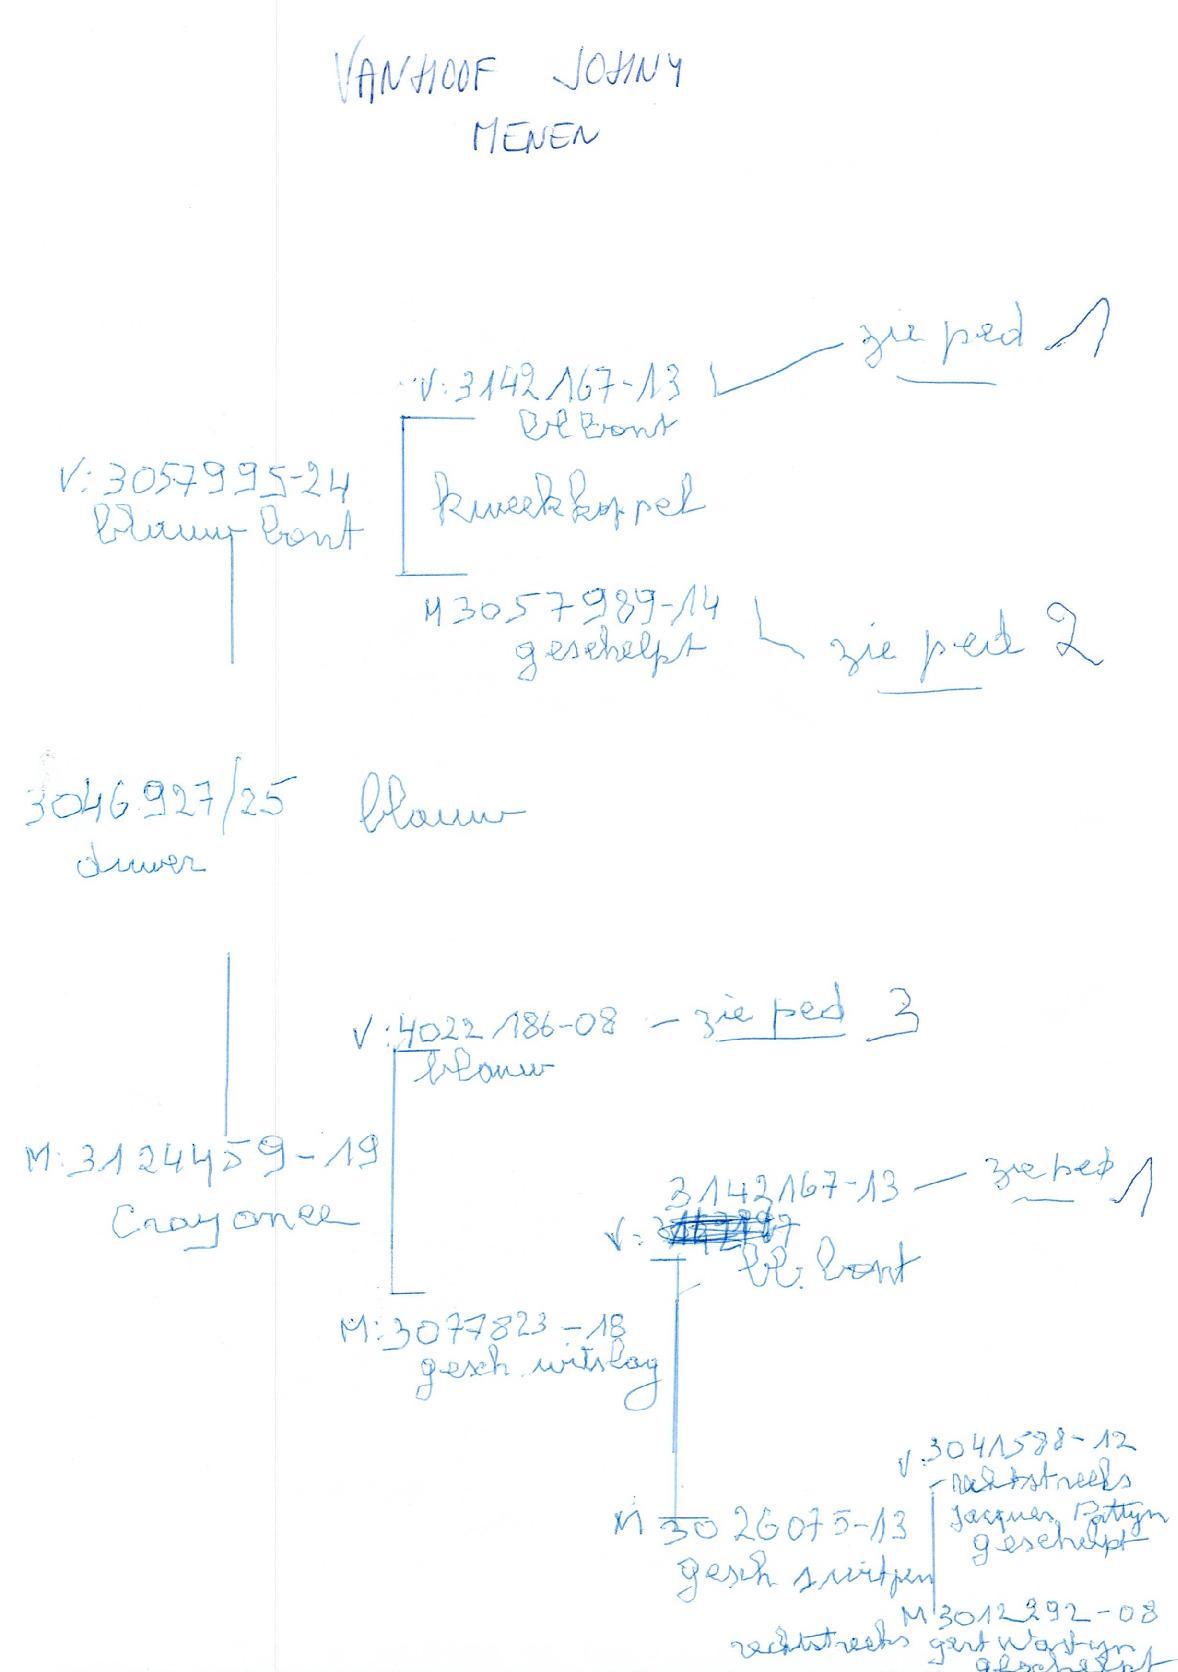 VANHOOF JOHNY
MENEN
zie ped 1
V: 3142167-13
bl bont
V: 3057995-24
blauw bont
kweekkoppel
M 3057989-14
geschelpt
zie ped 2
3046927/25 blauw
duiver
V: 4022186-08 - zie ped 3
blauw
M: 3124459-19
Crayonee
3142167-13 - zie ped 1
V:
bl. bont
M: 3077823-18
gesch. witslag
V. 3041588-12
rechtstreeks
Jacques Pattyn
geschelpt
M 3026075-13
gesch 1 witpen
M 3012292-08
rechtstreeks gert
geschelpt